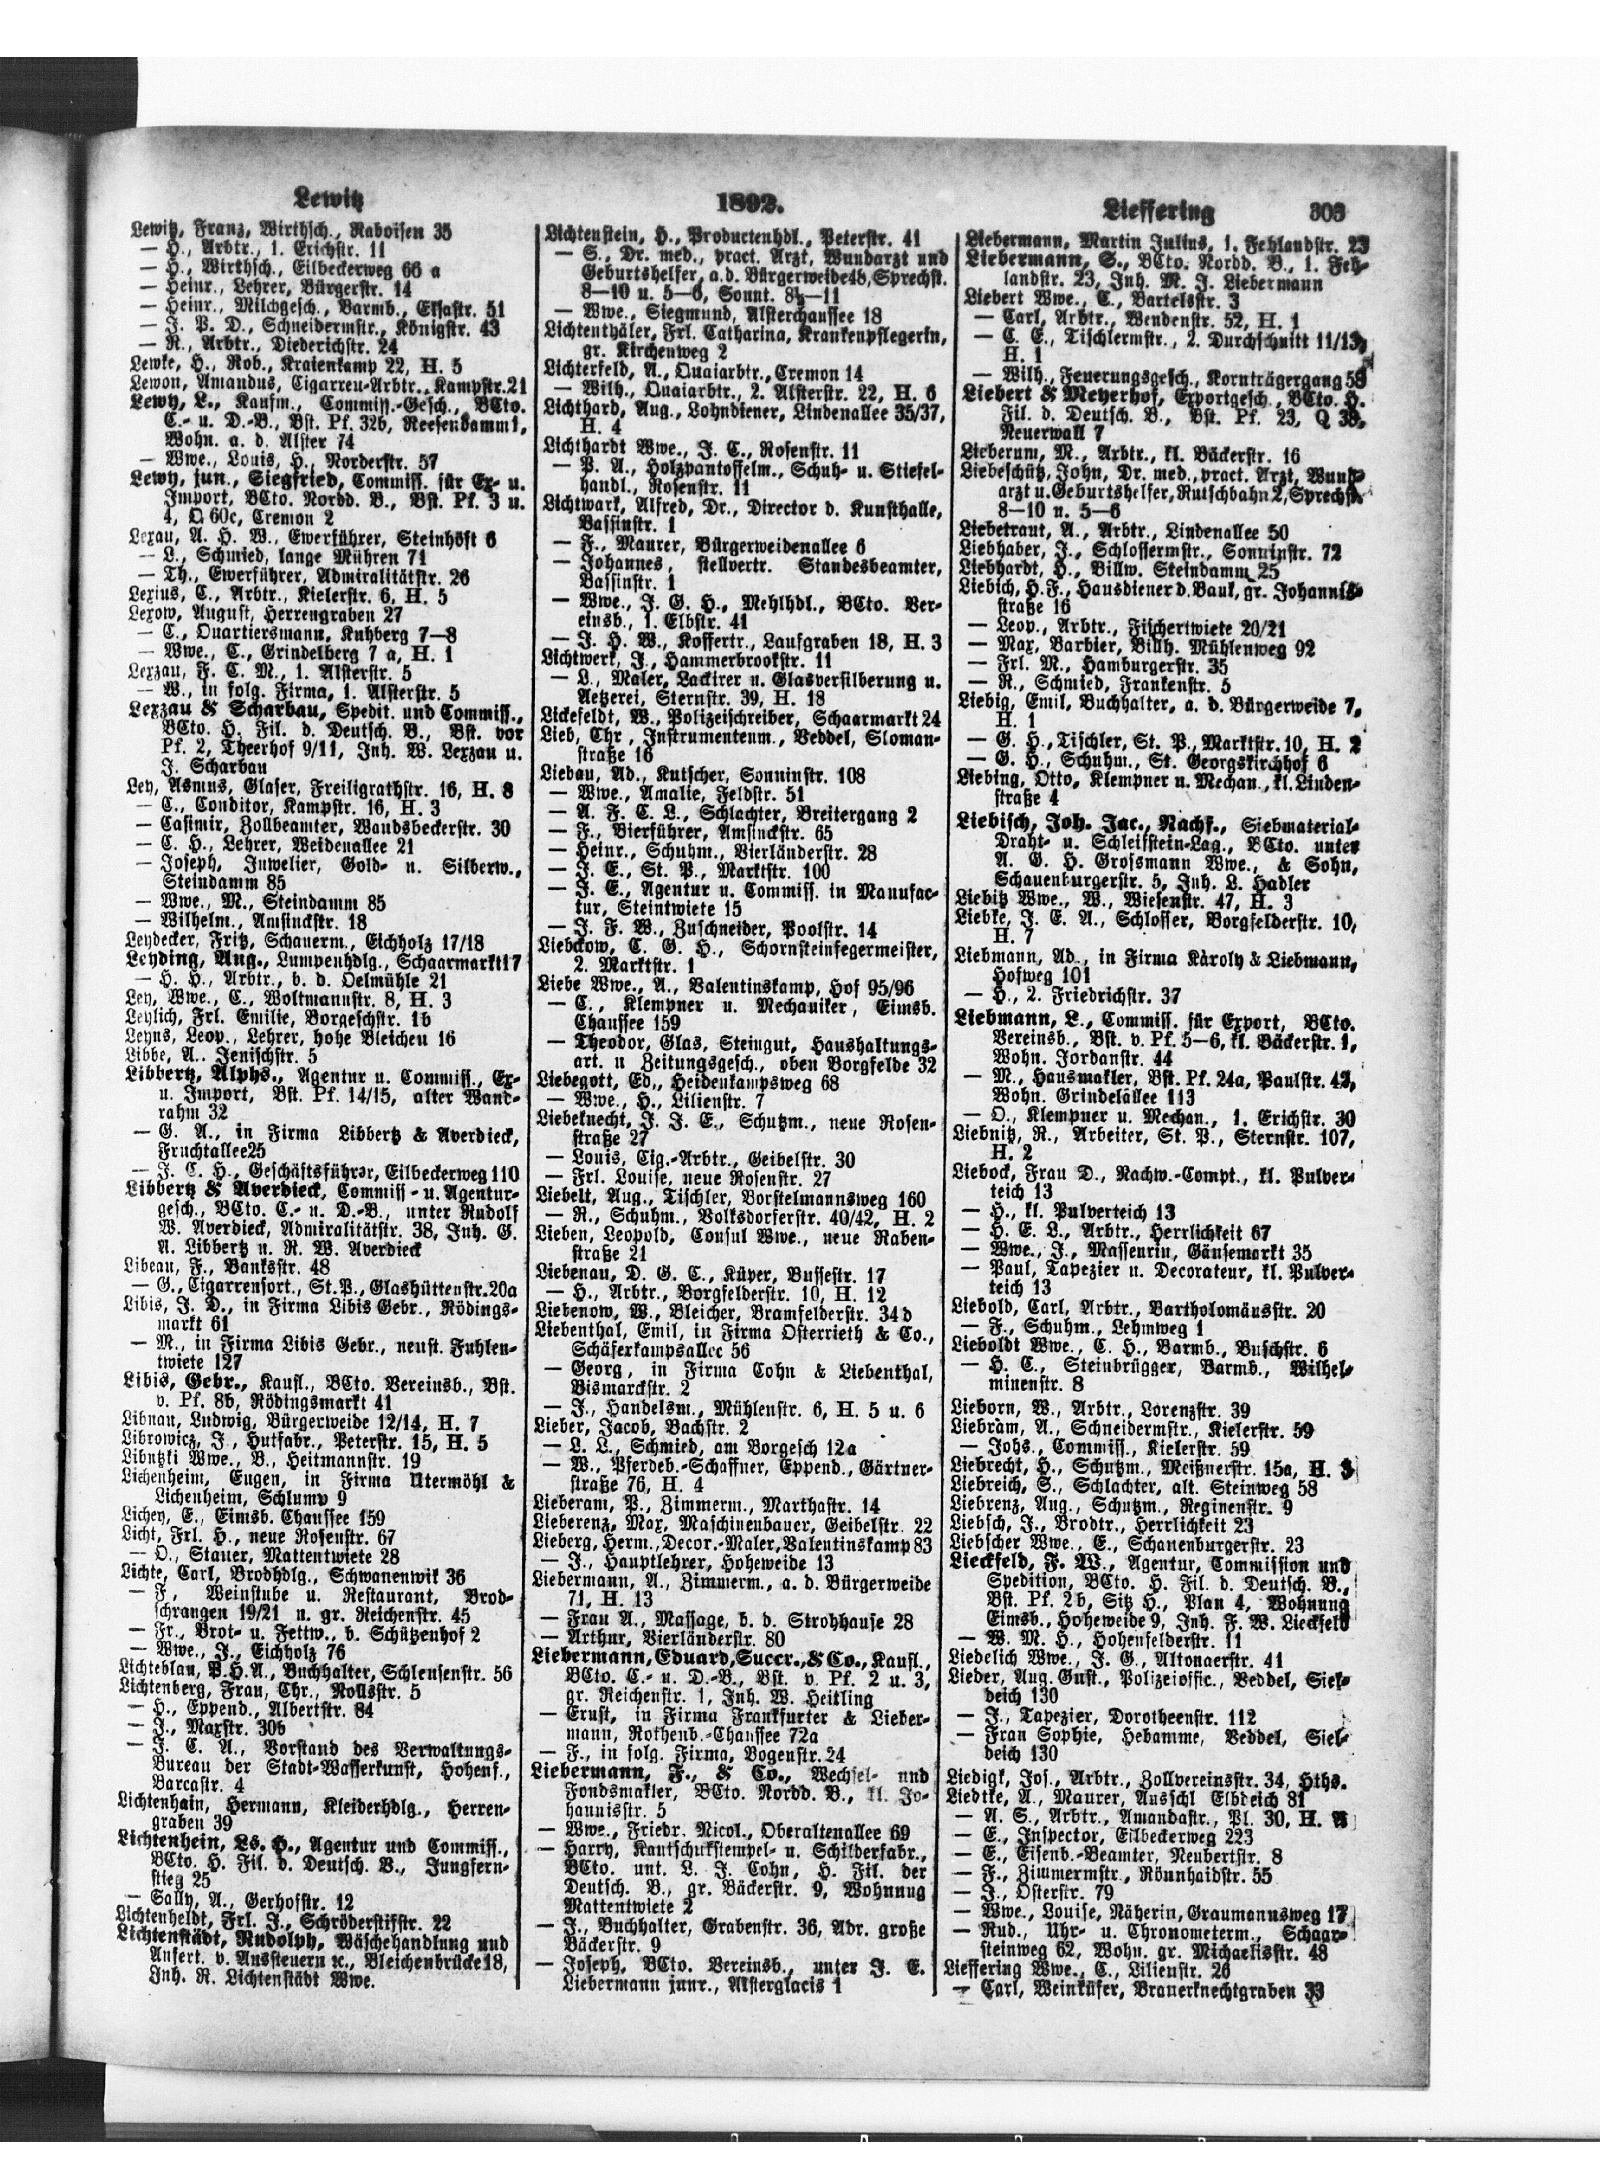 Lewitz
1892.
Lieffering 303
Lewitz, Franz, Wirthsch., Raboisen 35
— H., Arbtr., 1. Erichstr. 11
— H., Wirthsch., Eilbeckerweg 66 a
— Heinr., Lehrer, Bürgerstr. 14
— Heinr., Milchgesch., Barmb., Elsastr. 51
— J. P. D., Schneidermstr., Königstr. 43
— R., Arbtr., Diederichstr. 24
Lewke, H., Rob., Kraienkamp 22, H. 5
Lewon, Amandus, Cigarren-Arbtr., Kampstr. 21
Lewy, L., Kaufm., Commiss.-Gesch., BCto.
C.- u. D.-B., Bst. Pf. 32b, Reesendamm 1,
Wohn. a. d. Alster 74
— Wwe., Louis, H., Norderstr. 57
Lewy, jun., Siegfried, Commiss. für Ex- u.
Import, BCto. Nordd. B., Bst. Pf. 3 u.
4, Q 60c, Cremon 2
Lexau, A. H. W., Ewerführer, Steinhöft 6
— L., Schmied, lange Mühren 71
— Th., Ewerführer, Admiralitätstr. 26
Lexius, C., Arbtr., Kielerstr. 6, H. 5
Lexow, August, Herrengraben 27
— C., Quartiersmann, Kuhberg 7—8
— Wwe., C., Grindelberg 7 a, H. 1
Lexzau, F. C. M., 1. Alsterstr. 5
— W., in folg. Firma, 1. Alsterstr. 5
Lexzau & Scharbau, Spedit. und Commiss.,
BCto. H. Fil. d. Deutsch. B., Bst. vor
Pf. 2, Theerhof 9/11, Inh. W. Lexzau u.
J. Scharbau
Ley, Asmus, Glaser, Freiligrathstr. 16, H. 8
— C., Conditor, Kampstr. 16, H. 3
— Casimir, Zollbeamter, Wandsbeckerstr. 30
— C. H., Lehrer, Weidenallee 21
— Joseph, Juwelier, Gold- u. Silberw.,
Steindamm 85
— Wwe., M., Steindamm 85
— Wilhelm, Amsinckstr. 18
Leydecker, Fritz, Schauerm., Eichholz 17/18
Leyding, Aug., Lumpenhdlg., Schaarmarkt 17
— H. H., Arbtr., b. d. Oelmühle 21
Ley, Wwe., C., Woltmannstr. 8, H. 3
Leylich, Frl. Emilie, Borgeschstr. 1b
Leyns, Leop., Lehrer, hohe Bleichen 16
Libbe, A., Jenischstr. 5
Libbertz, Alphs., Agentur u. Commiss., Ex-
u. Import, Bst. Pf. 14/15, alter Wand-
rahm 32
— G. A., in Firma Libbertz & Averdieck,
Fruchtallee 25
— J. C. H., Geschäftsführer, Eilbeckerweg 110
Libbertz & Averdieck, Commiss- u. Agentur-
gesch., BCto. C.- u. D.-B., unter Rudolf
W. Averdieck, Admiralitätstr. 38, Inh. G.
A. Libbertz u. R. W. Averdieck
Libeau, F., Banksstr. 48
— G., Cigarrensort., St. P., Glashüttenstr. 20a
Libis, J. D., in Firma Libis Gebr., Rödings-
markt 61
— M., in Firma Libis Gebr., neust. Fuhlen-
twiete 127
Libis, Gebr., Kaufl., BCto. Vereinsb., Bst.
v. Pf. 8b, Rödingsmarkt 41
Libnau, Ludwig, Bürgerweide 12/14, H. 7
Librowicz, J., Hutfabr., Peterstr. 15, H. 5
Libutzki Wwe., B., Heitmannstr. 19
Lichenheim, Eugen, in Firma Utermöhl &
Lichenheim, Schlump 9
Lichey, E., Eimsb. Chaussee 159
Licht, Frl. H., neue Rosenstr. 67
— O., Stauer, Mattentwiete 28
Lichte, Carl, Brodhdlg., Schwanenwik 36
— F., Weinstube u. Restaurant, Brod-
schrangen 19/21 u. gr. Reichenstr. 45
— Fr., Brot- u. Fettw., b. Schützenhof 2
— Wwe., J., Eichholz 76
Lichteblau, P. H. A., Buchhalter, Schleusenstr. 56
Lichtenberg, Frau, Chr., Rollsstr. 5
— H., Eppend., Albertstr. 84
— J., Maxstr. 30b
— J. C. A., Vorstand des Verwaltungs-
Bureau der Stadt-Wasserkunst, Hohenf.,
Barcastr. 4
Lichtenhain, Hermann, Kleiderhdlg., Herren-
graben 39
Lichtenhein, Ls. H., Agentur und Commiss.,
BCto. H. Fil. d. Deutsch. B., Jungfern-
stieg 25
— Sally, A., Gerhofstr. 12
Lichtenheldt, Frl. J., Schröderstiftstr. 22
Lichtenstädt, Rudolph, Wäschehandlung und
Anfert. v. Aussteuern ꝛc., Bleichenbrücke 18,
Inh. R. Lichtenstädt Wwe.
Lichtenstein, H., Productenhdl., Peterstr. 41
— S., Dr. med., pract. Arzt, Wundarzt und
Geburtshelfer, a. d. Bürgerweide 48, Sprechst.
8—10 u. 5—6, Sonnt. 8½—11
— Wwe., Siegmund, Alsterchaussee 18
Lichtenthäler, Frl. Catharina, Krankenpflegerin,
gr. Kirchenweg 2
Lichterfeld, A., Quaiarbtr., Cremon 14
— Wilh., Quaiarbtr., 2. Alsterstr. 22, H. 6
Lichthard, Aug., Lohndiener, Lindenallee 35/37,
H. 4
Lichthardt Wwe., J. C., Rosenstr. 11
— P. A., Holzpantoffelm., Schuh- u. Stiefel-
handl., Rosenstr. 11
Lichtwark, Alfred, Dr., Director d. Kunsthalle,
Bassinstr. 1
— F., Maurer, Bürgerweidenallee 6
— Johannes, stellvertr. Standesbeamter,
Bassinstr. 1
— Wwe., J. G. H., Mehlhdl., BCto. Ver-
einsb., 1. Elbstr. 41
— J. H. W., Koffertr., Laufgraben 18, H. 3
Lichtwerk, J., Hammerbrookstr. 11
— L., Maler, Lackirer u. Glasversilberung u.
Aetzerei, Sternstr. 39, H. 18
Lickefeldt, W., Polizeischreiber, Schaarmarkt 24
Lieb, Chr., Instrumentenm., Veddel, Sloman-
straße 16
Liebau, Ad., Kutscher, Sonninstr. 108
— Wwe., Amalie, Feldstr. 51
— A. F. C. L., Schlachter, Breitergang 2
— F., Bierführer, Amsinckstr. 65
— Heinr., Schuhm., Vierländerstr. 28
— J. E., St. P., Marktstr. 100
— J. E., Agentur u. Commiss. in Manufac-
tur, Steintwiete 15
— J. F. W., Zuschneider, Poolstr. 14
Liebckow, C. G. H., Schornsteinfegermeister,
2. Marktstr. 1
Liebe Wwe., A., Valentinskamp, Hof 95/96
— C., Klempner u. Mechaniker, Eimsb.
Chaussee 159
— Theodor, Glas, Steingut, Haushaltungs-
art. u Zeitungsgesch., oben Borgfelde 32
Liebegott, Ed., Heidenkampsweg 68
— Wwe., H., Lilienstr. 7
Liebeknecht, J. J. E., Schutzm., neue Rosen-
straße 27
— Louis, Cig.-Arbtr., Geibelstr. 30
— Frl. Louise, neue Rosenstr. 27
Liebelt, Aug., Tischler, Borstelmannsweg 160
— R., Schuhm., Volksdorferstr. 40/42, H. 2
Lieben, Leopold, Consul Wwe., neue Raben-
straße 21
Liebenau, D. G. C., Küper, Bussestr. 17
— H., Arbtr., Borgfelderstr. 10, H. 12
Liebenow, W., Bleicher, Bramfelderstr. 34 d
Liebenthal, Emil, in Firma Osterrieth & Co.,
Schäferkampsallee 56
— Georg, in Firma Cohn & Liebenthal,
Bismarckstr. 2
— J., Handelsm., Mühlenstr. 6, H. 5 u. 6
Lieber, Jacob, Bachstr. 2
— L. L., Schmied, am Borgesch 12a
— W., Pferdeb.-Schaffner, Eppend., Gärtner-
straße 76, H. 4
Lieberam, P., Zimmerm., Marthastr. 14
Lieberenz, Max, Maschinenbauer, Geibelstr. 22
Lieberg, Herm., Decor.-Maler, Valentinskamp 83
— J., Hauptlehrer, Hoheweide 13
Liebermann, A., Zimmerm., a. d. Bürgerweide
71, H. 13
— Frau A., Massage, b. d. Strohhause 28
— Arthur, Vierländerstr. 80
Liebermann, Eduard, Succr., & Co., Kaufl.,
BCto. C.- u. D.-B., Bst. v. Pf. 2 u. 3,
gr. Reichenstr. 1, Inh. W. Heitling
— Ernst, in Firma Frankfurter & Lieber-
mann, Rothenb.-Chaussee 72a
— F., in folg. Firma, Bogenstr. 24
Liebermann, F., & Co., Wechsel- und
Fondsmakler, BCto. Nordd. B., kl. Jo-
hannisstr. 5
— Wwe., Friedr. Nicol., Oberaltenallee 69
— Harry, Kautschukstempel- u. Schilderfabr.,
BCto. unt. L. J. Cohn, H. Fil. der
Deutsch. B., gr. Bäckerstr. 9, Wohnung
Mattentwiete 2
— J., Buchhalter, Grabenstr. 36, Adr. große
Bäckerstr. 9
— Joseph, BCto. Vereinsb., unter J. E.
Liebermann junr., Alsterglacis 1
Liebermann, Martin Julius, 1. Fehlandstr. 23
Liebermann, S., BCto. Nordd. B., 1. Feh-
landstr. 23, Inh. M. J. Liebermann
Liebert Wwe., C., Bartelsstr. 3
— Carl, Arbtr., Wendenstr. 52, H. 1
— C. E., Tischlermstr., 2. Durchschnitt 11/13,
H. 1
— Wilh., Feuerungsgesch., Kornträgergang 58
Liebert & Meyerhof, Exportgesch., BCto. H.
Fil. d. Deutsch. B., Bst. Pf. 23, Q 38,
Neuerwall 7
Lieberum, M., Arbtr., kl. Bäckerstr. 16
Liebeschütz, John, Dr. med., pract. Arzt, Wund-
arzt u. Geburtshelfer, Rutschbahn 2, Sprechst.
8—10 u. 5—6
Liebetraut, A., Arbtr., Lindenallee 50
Liebhaber, J., Schlossermstr., Sonninstr. 72
Liebhardt, H., Billw. Steindamm 25
Liebich, H. F., Hausdiener d. Bank, gr. Johannis-
straße 16
— Leop., Arbtr., Fischertwiete 20/21
— Max, Barbier, Billh. Mühlenweg 92
— Frl. M., Hamburgerstr. 35
— R., Schmied, Frankenstr. 5
Liebig, Emil, Buchhalter, a. d. Bürgerweide 7,
H. 1
— G. H., Tischler, St. P., Marktstr. 10, H. 2
— G. H., Schuhm., St. Georgskirchhof 6
Liebing, Otto, Klempner u. Mechan., kl. Linden-
straße 4
Liebisch, Joh. Jac., Nachf., Siebmaterial-
Draht- u. Schleifstein-Lag., BCto. unter
A. G. H. Grossmann Wwe., & Sohn,
Schauenburgerstr. 5, Inh. L. Hadler
Liebitz Wwe., W., Wiesenstr. 47, H. 3
Liebke, J. E. A., Schlosser, Borgfelderstr. 10,
H. 7
Liebmann, Ad., in Firma Károly & Liebmann,
Hofweg 101
— H., 2. Friedrichstr. 37
Liebmann, L., Commiss. für Export, BCto.
Vereinsb., Bst. v. Pf. 5—6, kl. Bäckerstr. 1,
Wohn. Jordanstr. 44
— M., Hausmakler, Bst. Pf. 24a, Paulstr. 42,
Wohn. Grindelallee 113
— O., Klempner u. Mechan., 1. Erichstr. 30
Liebnitz, R., Arbeiter, St. P., Sternstr. 107,
H. 2
Liebock, Frau D., Nachw.-Compt., kl. Pulver-
teich 13
— H., kl. Pulverteich 13
— H. E. L., Arbtr., Herrlichkeit 67
— Wwe., J., Masseurin, Gänsemarkt 35
— Paul, Tapezier u. Decorateur, kl. Pulver-
teich 13
Liebold, Carl, Arbtr., Bartholomäusstr. 20
— F., Schuhm., Lehmweg 1
Lieboldt Wwe., C. H., Barmb., Buschstr. 6
— H. C., Steinbrügger, Barmb., Wilhel-
minenstr. 8
Lieborn, W., Arbtr., Lorenzstr. 39
Liebram, A., Schneidermstr., Kielerstr. 59
— Johs., Commiss., Kielerstr. 59
Liebrecht, H., Schutzm., Meißnerstr. 15a, H. 3
Liebreich, S., Schlachter, alt. Steinweg 58
Liebrenz, Aug., Schutzm., Reginenstr. 9
Liebsch, J., Brodtr., Herrlichkeit 23
Liebscher Wwe., E., Schauenburgerstr. 23
Lieckfeld, F. W., Agentur, Commission und
Spedition, BCto. H. Fil. d. Deutsch. B.,
Bst. Pf. 2b, Sitz H., Plan 4, Wohnung
Eimsb., Hoheweide 9, Inh. F. W. Lieckfeld
— W. M. H., Hohenfelderstr. 11
Liedelich Wwe., J. G., Altonaerstr. 41
Lieder, Aug. Gust., Polizeioffic., Veddel, Siel-
deich 130
— J., Tapezier, Dorotheenstr. 112
— Frau Sophie, Hebamme, Veddel, Siel-
deich 130
Liedigk, Jos., Arbtr., Zollvereinsstr. 34, Hths.
Liedtke, A., Maurer, Ausschl Elbdeich 81
— A. S., Arbtr., Amandastr., Pl. 30, H.
— E., Inspector, Eilbeckerweg 223
— E., Eisenb.-Beamter, Neubertstr. 8
— F., Zimmermstr., Rönnhaidstr. 55
— J., Osterstr. 79
— Wwe., Louise, Näherin, Graumannsweg 17
— Rud., Uhr- u. Chronometerm., Schaar-
steinweg 62, Wohn. gr. Michaelisstr. 48
Lieffering Wwe., C., Lilienstr. 26
— Carl, Weinküfer, Brauerknechtgraben 33